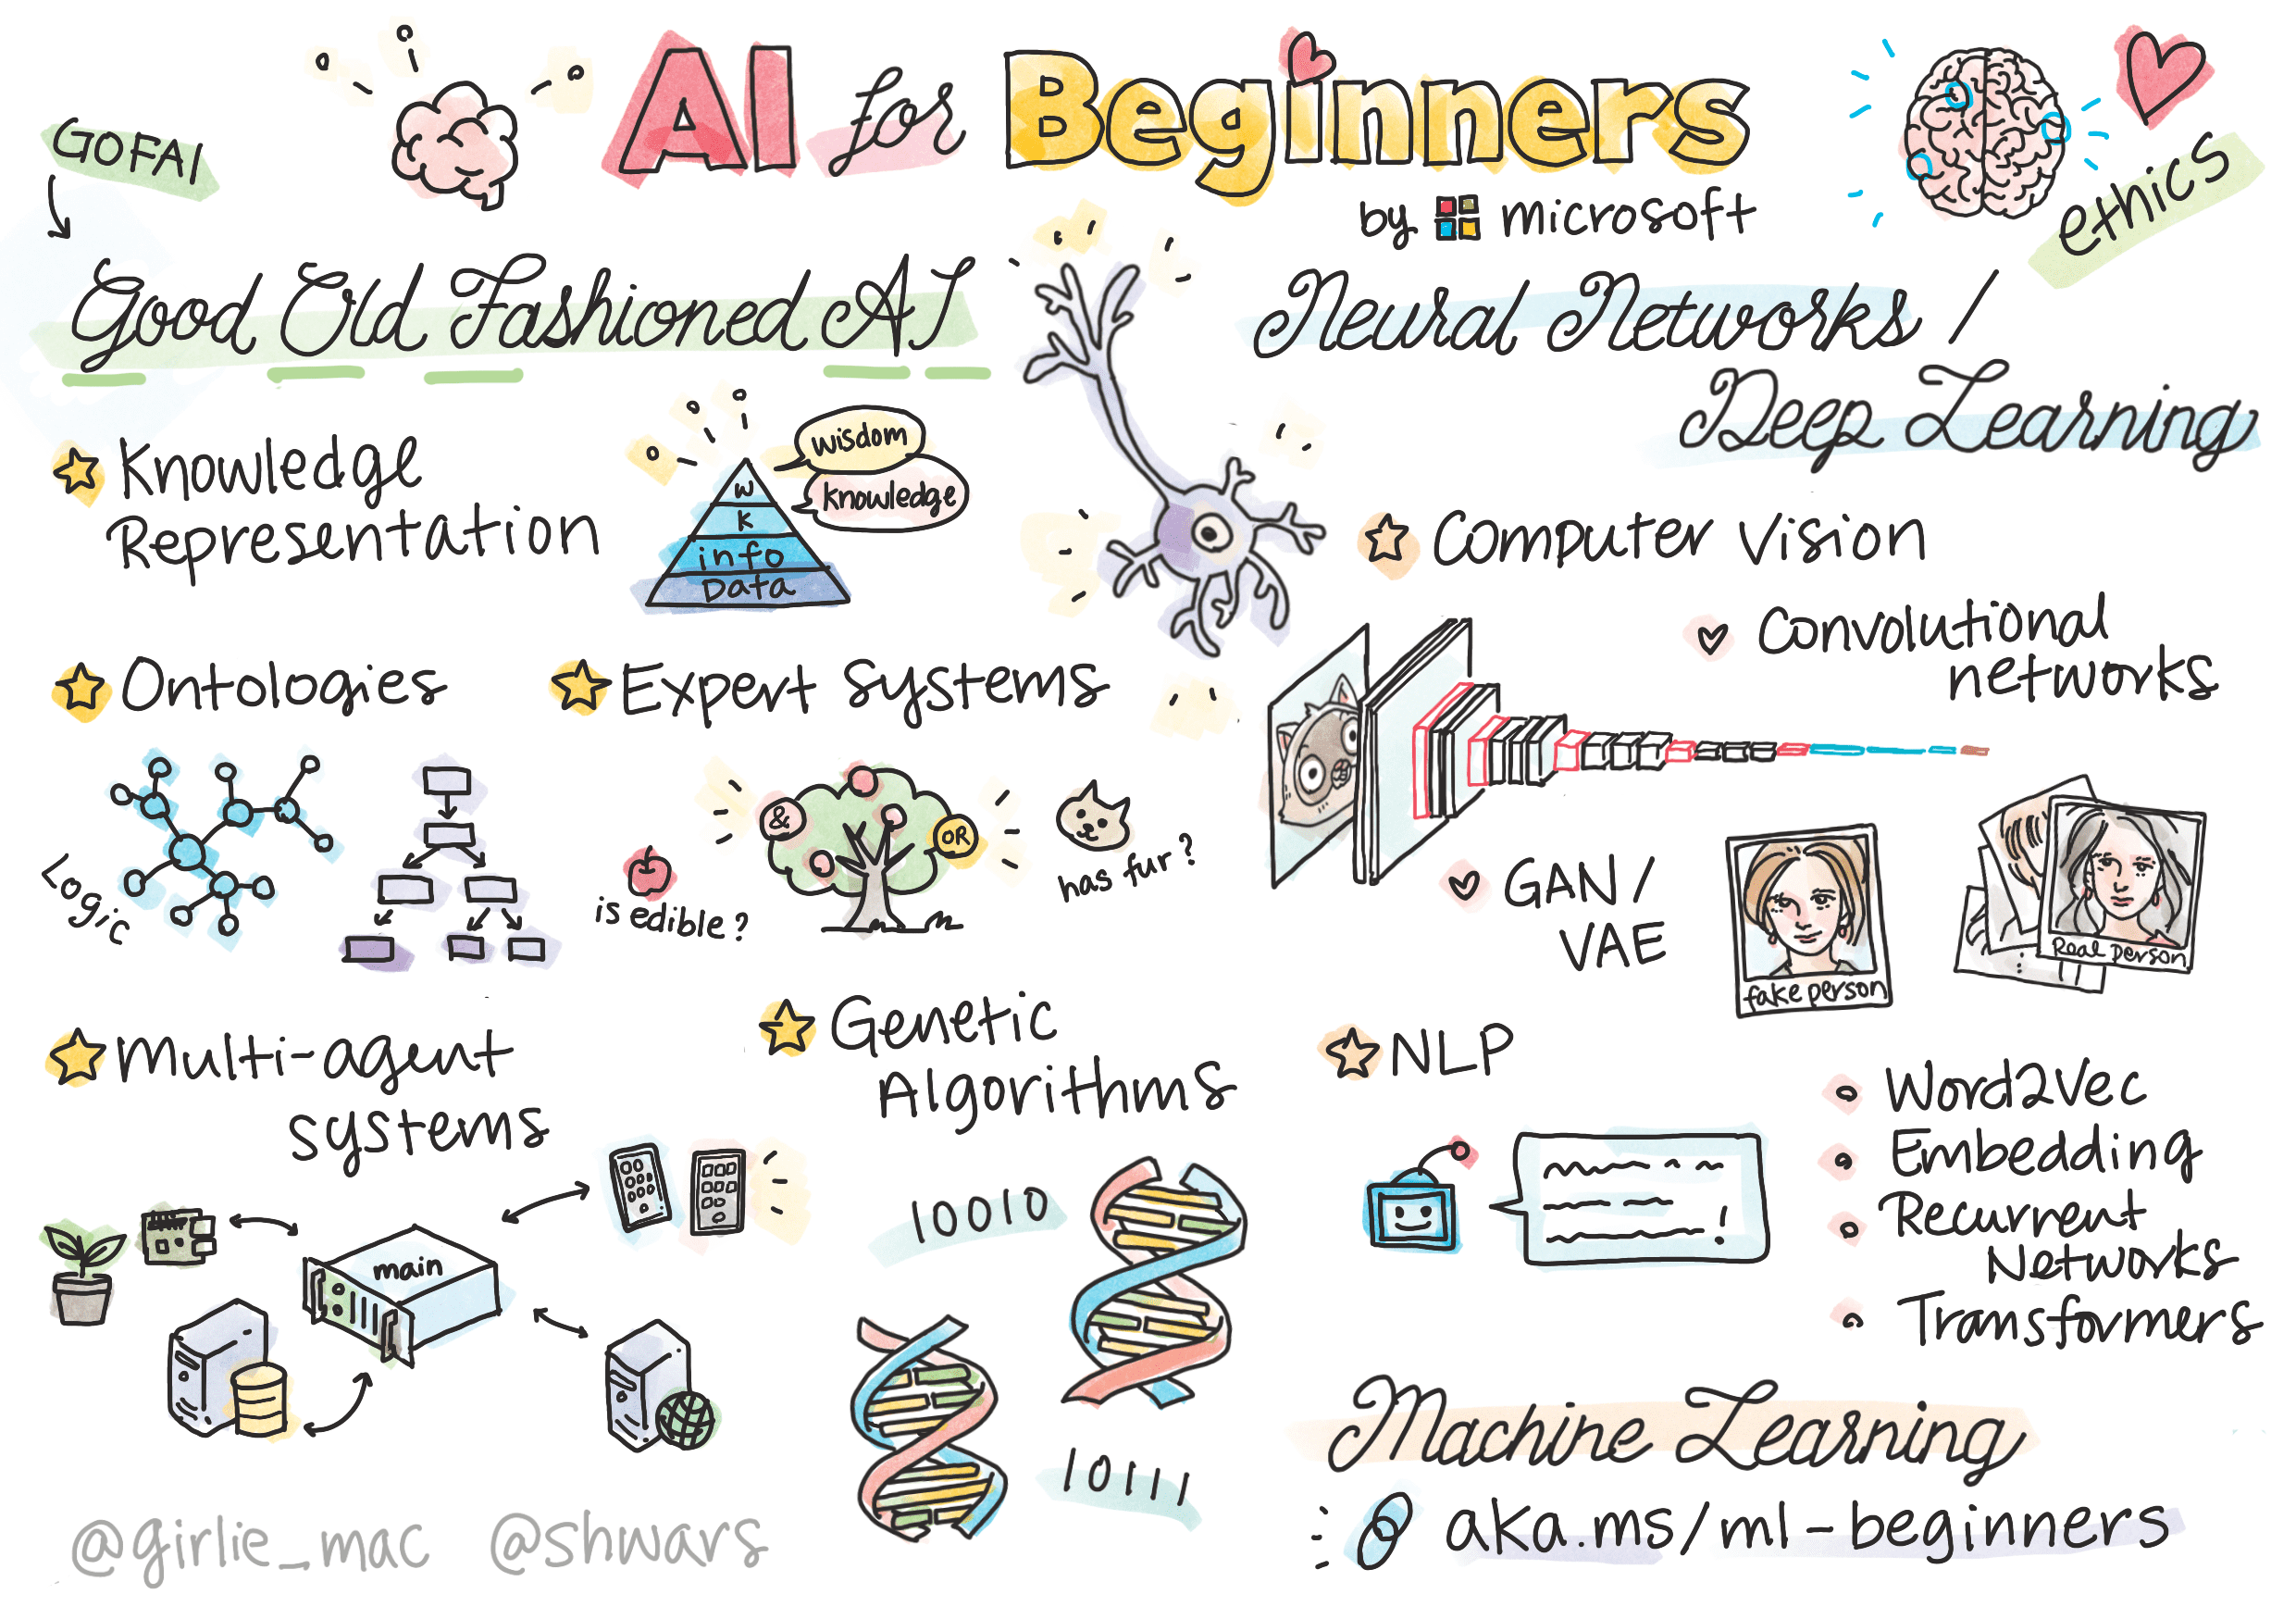 AI for Beginners
by microsoft
GOFAI
Good Old Fashioned AI
Knowledge
Representation
wisdom
knowledge
W
K
info
Data
Ontologies
Logic
Expert systems
&
OR
is edible?
has fur?
Multi-agent
systems
main
Genetic
Algorithms
10010
10111
ethics
Neural Networks /
Deep Learning
Computer Vision
Convolutional
networks
GAN /
VAE
fake person
Real person
NLP
Word2Vec
Embedding
Recurrent
Networks
Transformers
!
Machine Learning
aka.ms/ml-beginners
@girlie_mac @shwars